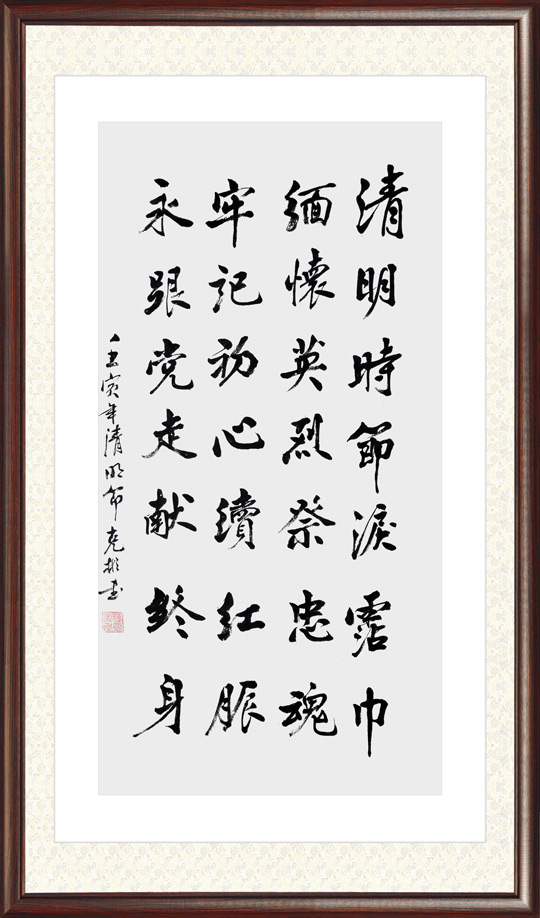 清明時節淚霑巾
緬懷英烈祭忠魂
牢記初心續紅脈
永跟党走献終身
壬寅年清明節克彬书